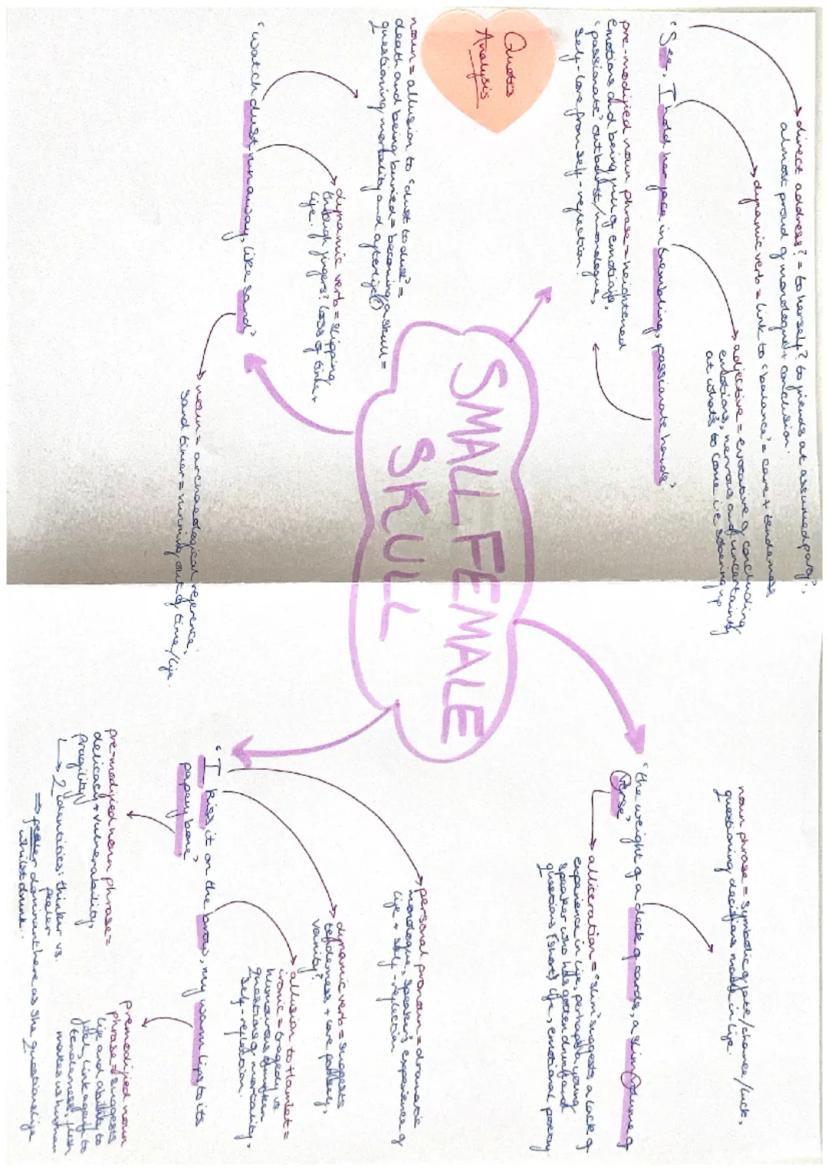 Quotes
Analysis
SMALL FEMALE
SKULL
direct address? = to herself? to friends at assumed party?,
almost proud of monologue + conclusion.
dynamic verb = link to 'balance' = care + tenderness
adjective = evocative of concluding
emotions, nervous and uncertainty
at what's to come i.e. sobering up
"See, I hold her face in trembling, passionate hands"
pre-modified noun phrase = heightened
emotions and being full of emotions,
'passionate' outburst/monologue,
self-love from self-rejection?
noun = allusion to 'dust to dust' =
death and being buried = becoming a skull =
questioning mortality and afterlife(?)
dynamic verb = slipping
through fingers? loss of time,
life.
"Watch dust run away, like sand"
noun = archaeological reference,
sand timer = running out of time/life.
noun phrase = symbolic of fate/chance/luck,
questioning decisions made in life.
"the weight of a deck of cards, a slim volume of
verse"
alliteration = 'slim' suggests a lack of
experience in life, perhaps a young
speaker who has gotten drunk and
questions (short) life, emotional poetry
personal pronoun = dramatic
monologue, speaker's experience of
life + self-reflection
dynamic verb = suggests
tenderness + care possibly,
vanity?
allusion to Hamlet =
ironic = tragedy vs
humorous drunken
questions of mortality,
self-reflection.
"I kiss it on the brow, my warm lips to its
papery bone"
pre-modified noun phrase =
delicacy + vulnerability,
fragility
2 identities: thinker vs.
feeler
⇒ feeler dominant here as she questions life
whilst drunk.
premodified noun
phrase = suggests
life and ability to
feel, linkage of to
tenderness, flesh
makes us human